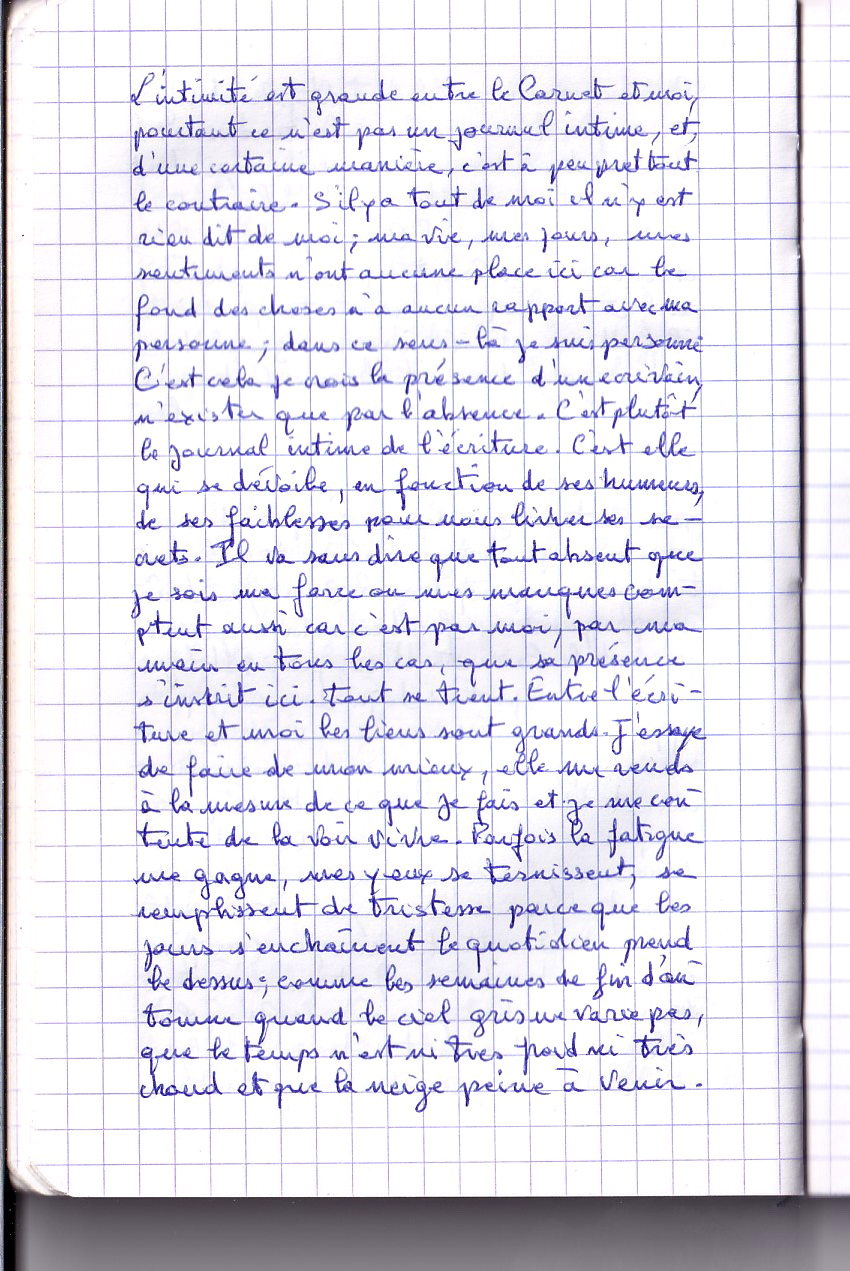 L'intimité est grande entre le Carnet et moi,
pourtant ce n'est pas un journal intime, et,
d'une certaine manière, c'est à peu pret tout
le contraire. S'il y a tout de moi il n'y est
rien dit de moi ; ma vie, mes jours, mes
sentiments n'ont aucune place ici car le
fond des choses n'a aucun rapport avec ma
personne ; dans ce sens-là je suis personne
C'est cela je crois la présence d'un écrivain,
n'exister que par l'absence. C'est plutôt
le journal intime de l'écriture. C'est elle
qui se dévoile, en fonction de ses humeurs,
de ses faiblesses pour nous livrer ses se-
crets. Il va sans dire que tout absent que
je sois ma force ou mes manques com-
ptent aussi car c'est par moi, par ma
main en tous les cas, que sa présence
s'inscrit ici. tout se tient. Entre l'écri-
ture et moi les liens sont grands. J'essaye
de faire de mon mieux, elle me rends
à la mesure de ce que je fais et je me con
tente de la voir vivre. Parfois la fatigue
me gagne, mes yeux se ternissent, se
remplissent de tristesse parce que les
jours s'enchaînent le quotidien prend
le dessus ; comme les semaines de fin d'au
tomne quand le ciel gris ne varie pas,
que le temps n'est ni très froid ni très
chaud et que la neige peine à venir.